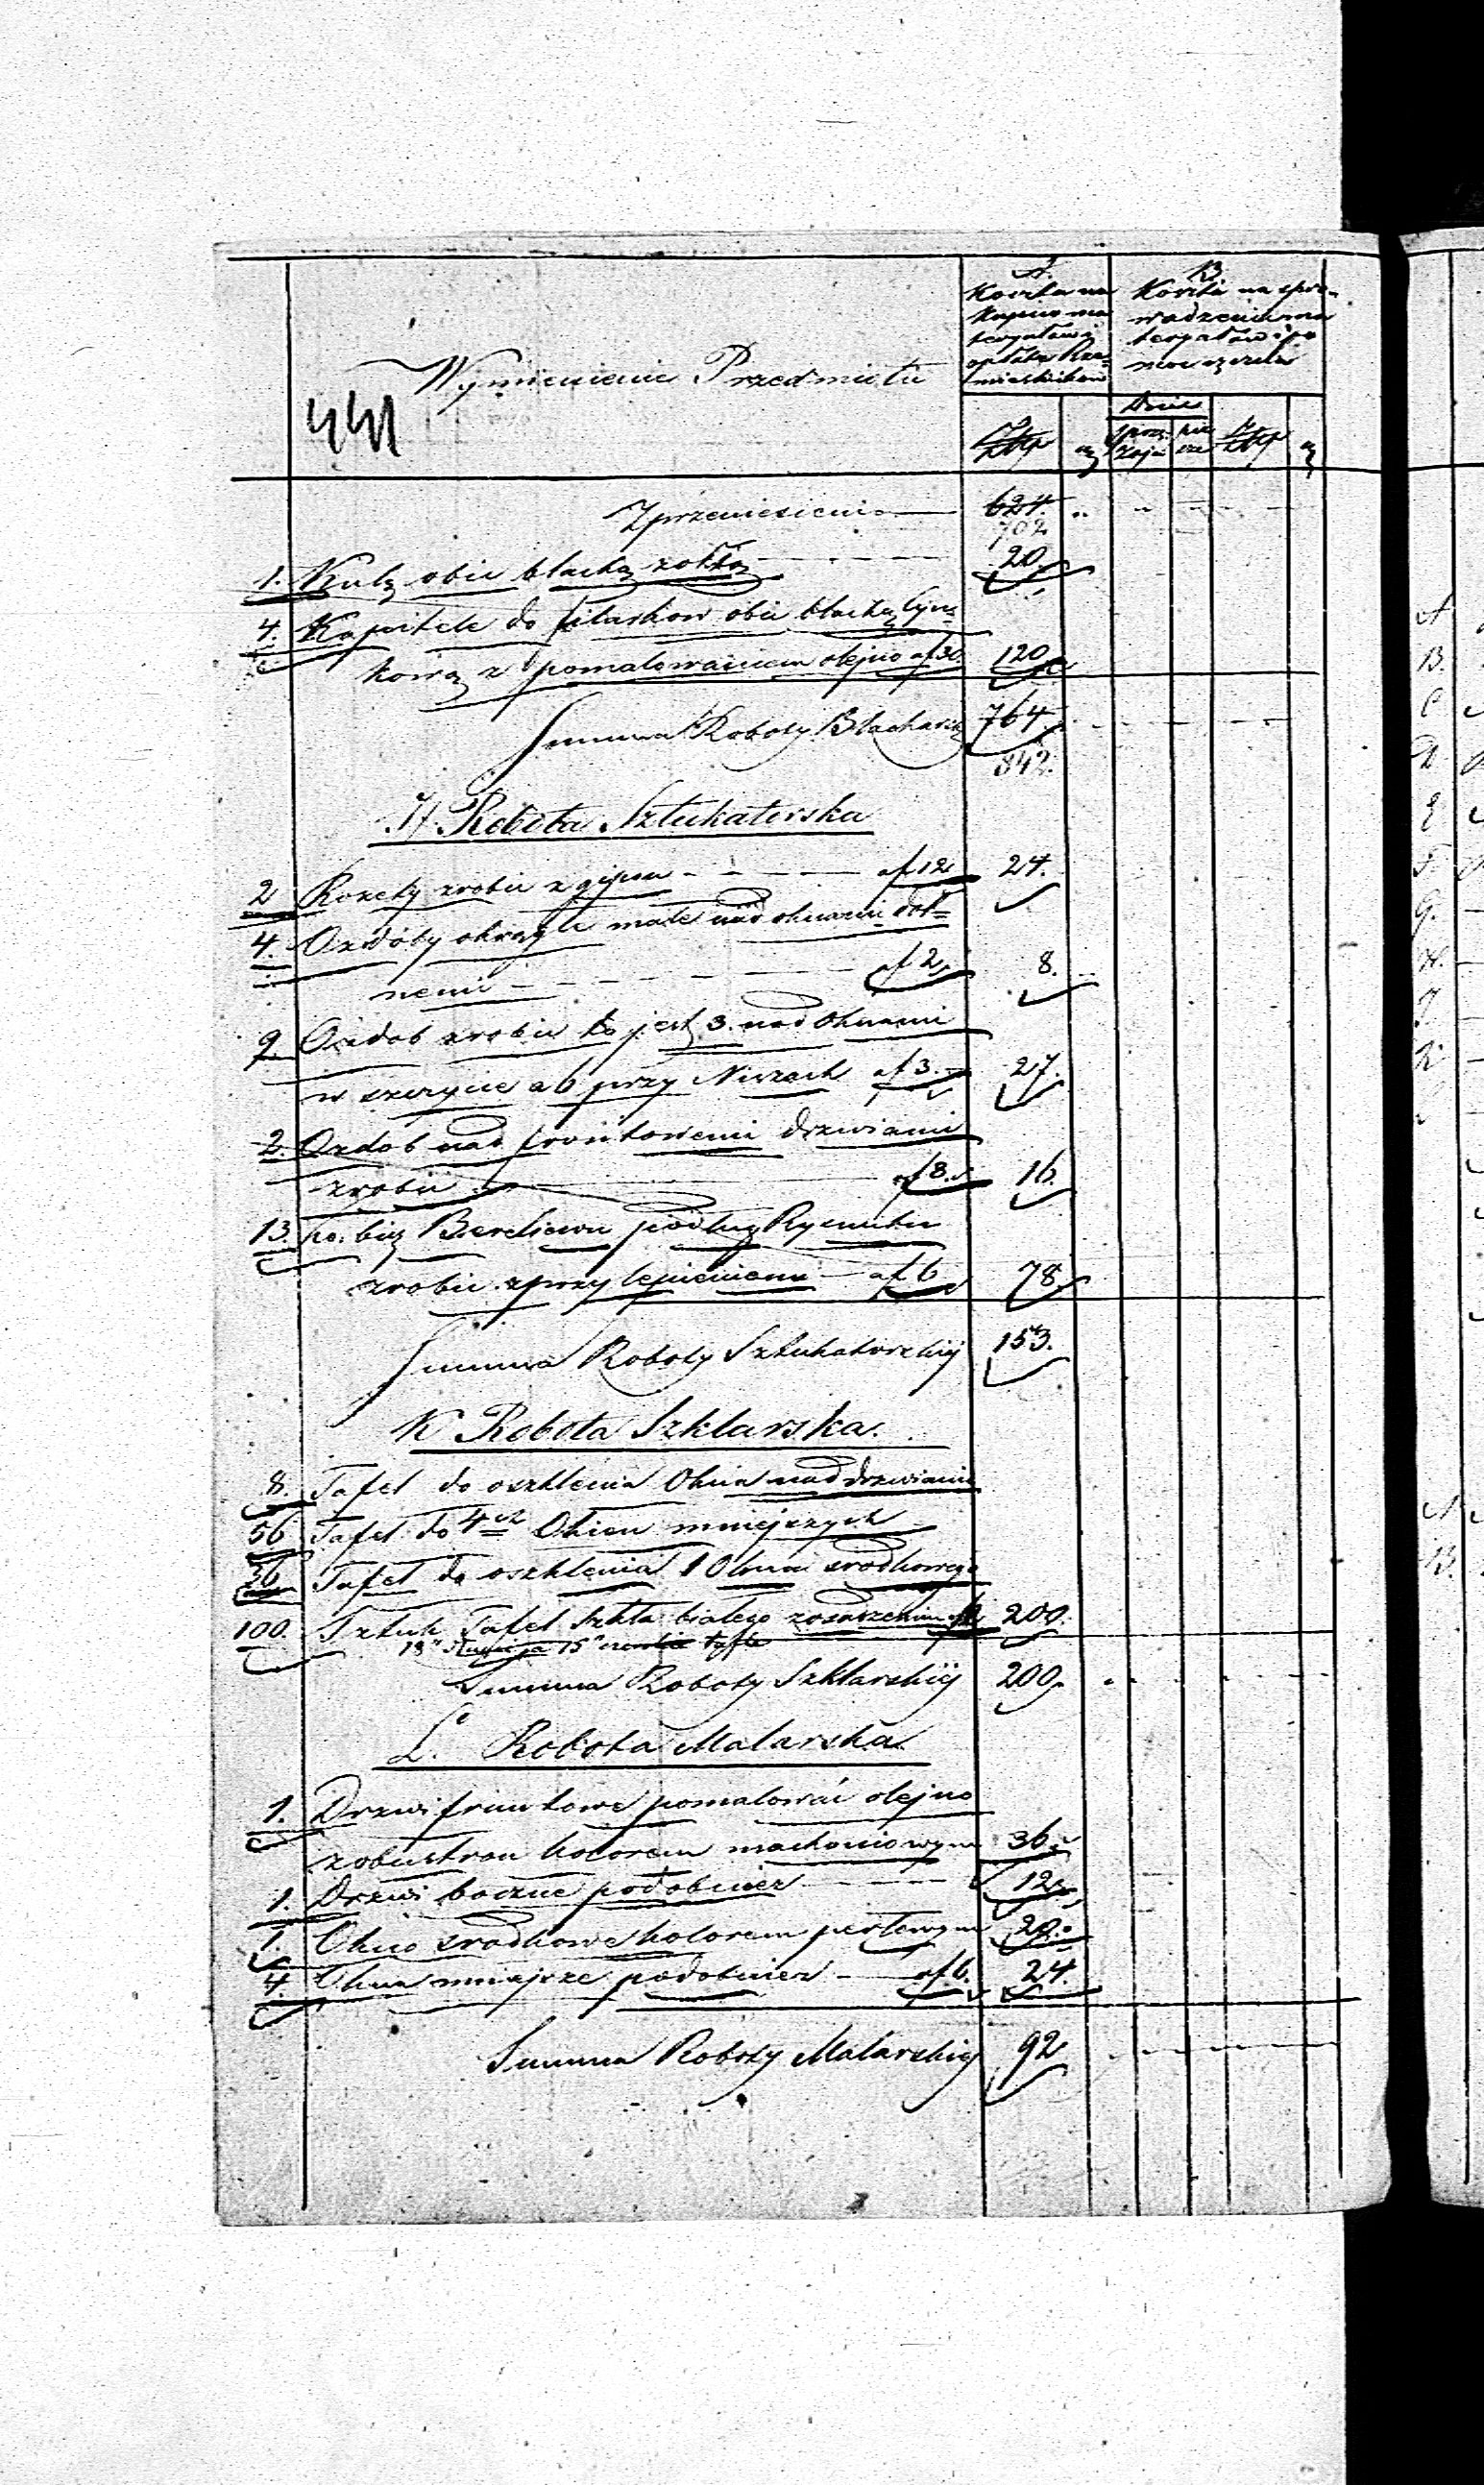 Wymienienie Przedmiotu
A.
Koszta na
kupno ma
teryałów i
opłata Rze-
mieślników
B
Koszta na spro-
wadzenie ma
teryałów i po
moc
Dnie
sprzę-
żaje
pie
sze
Złp
Złp
Zprzeniesienia 624.
702
1. Kulę obić blachą żółtą 20
4. Kapitele do filarkow obić blachą Cyn=
kową z pomalowaniem olejno af 30. 120
Summa Roboty Blacharsk 764.
842.
J. Robota Sztukatorska
2 Rozety zrobić z gipsu af 12 24.
4. Ozdoby okrągłe małe nad oknami dol=
nemi af 2 8.
9. Ozdob zrobić to jest 3. nad Oknami
w szczycie a 6 przy Niszach af 3. 27.
2. Ozdob nad frontowemi drzwiami
zrobić af 8. 16.
13. po: bież podług Rysunku
zrobić z przylepieniem af 6 78
Summa Roboty Sztukatorskiij 153.
K Robota Szklarska.
8. Tafel do oszklenia Okna nad drzwiami
56 Tafel do 4ch Okien mniejszych
36 Tafel do oszklenia 1 Okna srodkowego
100. Sztuk Tafel Szkła białego 200.
Summa Roboty Szklarskiij 200
L. Robota Malarska.
1. Drzwi frontowe pomalować olejno
zobustron kolorem machoniowym 36
1. Drzwi boczne podobniez 12
1. Okno srodkowe kolorem perłowym 20.
4. Okna mniejsze podobniez af 6. 24.
Summa Roboty Malarskiij 92